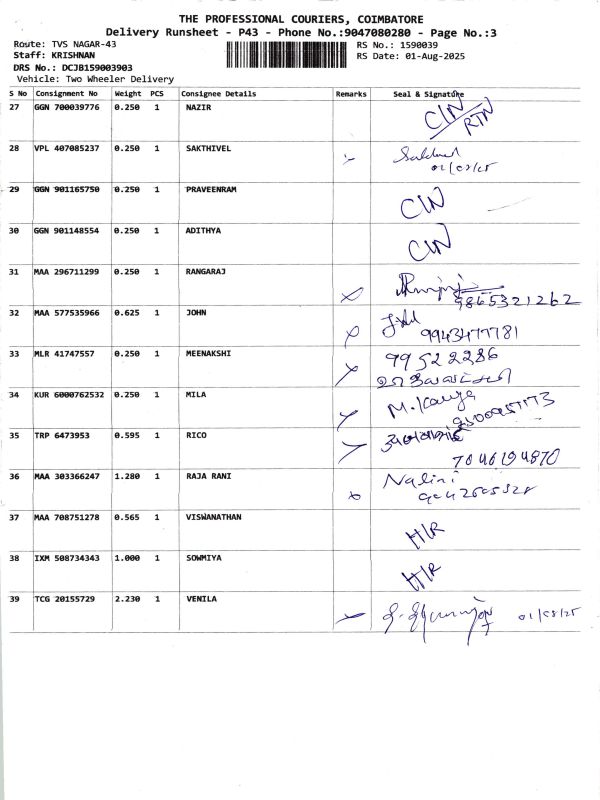 THE PROFESSIONAL COURIERS, COIMBATORE
Delivery Runsheet - P43 - Phone No.:9047080280 - Page No.:3
Route: TVS NAGAR-43 RS No.: 1590039
Staff: KRISHNAN RS Date: 01-Aug-2025
DRS No.: DCJB159003903
Vehicle: Two Wheeler Delivery
S No Consignment No Weight PCS Consignee Details Remarks Seal & Signature
27 GGN 700039776 0.250 1 NAZIR CIN/RTN
28 VPL 407085237 0.250 1 SAKTHIVEL
01/08/25
29 GGN 901165750 0.250 1 PRAVEENRAM CIN
30 GGN 901148554 0.250 1 ADITHYA CIN
31 MAA 296711299 0.250 1 RANGARAJ
9865321262
32 MAA 577535966 0.625 1 JOHN
9943477781
33 MLR 41747557 0.250 1 MEENAKSHI
34 KUR 6000762532 0.250 1 MILA M. Kavya
35 TRP 6473953 0.595 1 RICO
7046194870
36 MAA 303366247 1.280 1 RAJA RANI Nalini
37 MAA 708751278 0.565 1 VISWANATHAN H/R
38 IXM 508734343 1.000 1 SOWMIYA H/R
39 TCG 20155729 2.230 1 VENILA 01/08/25